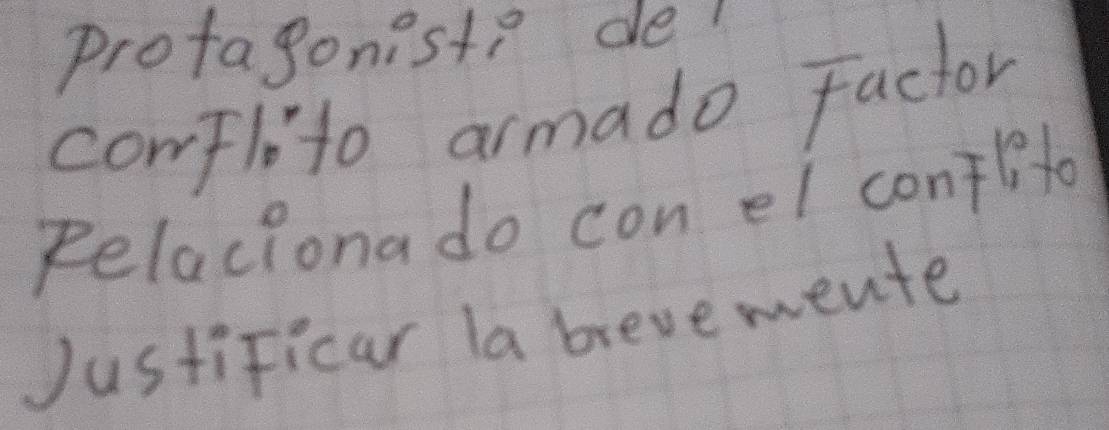 protagonisti del
comflito armado Factor
Relacionado con el conflito
Justificar la brevemente